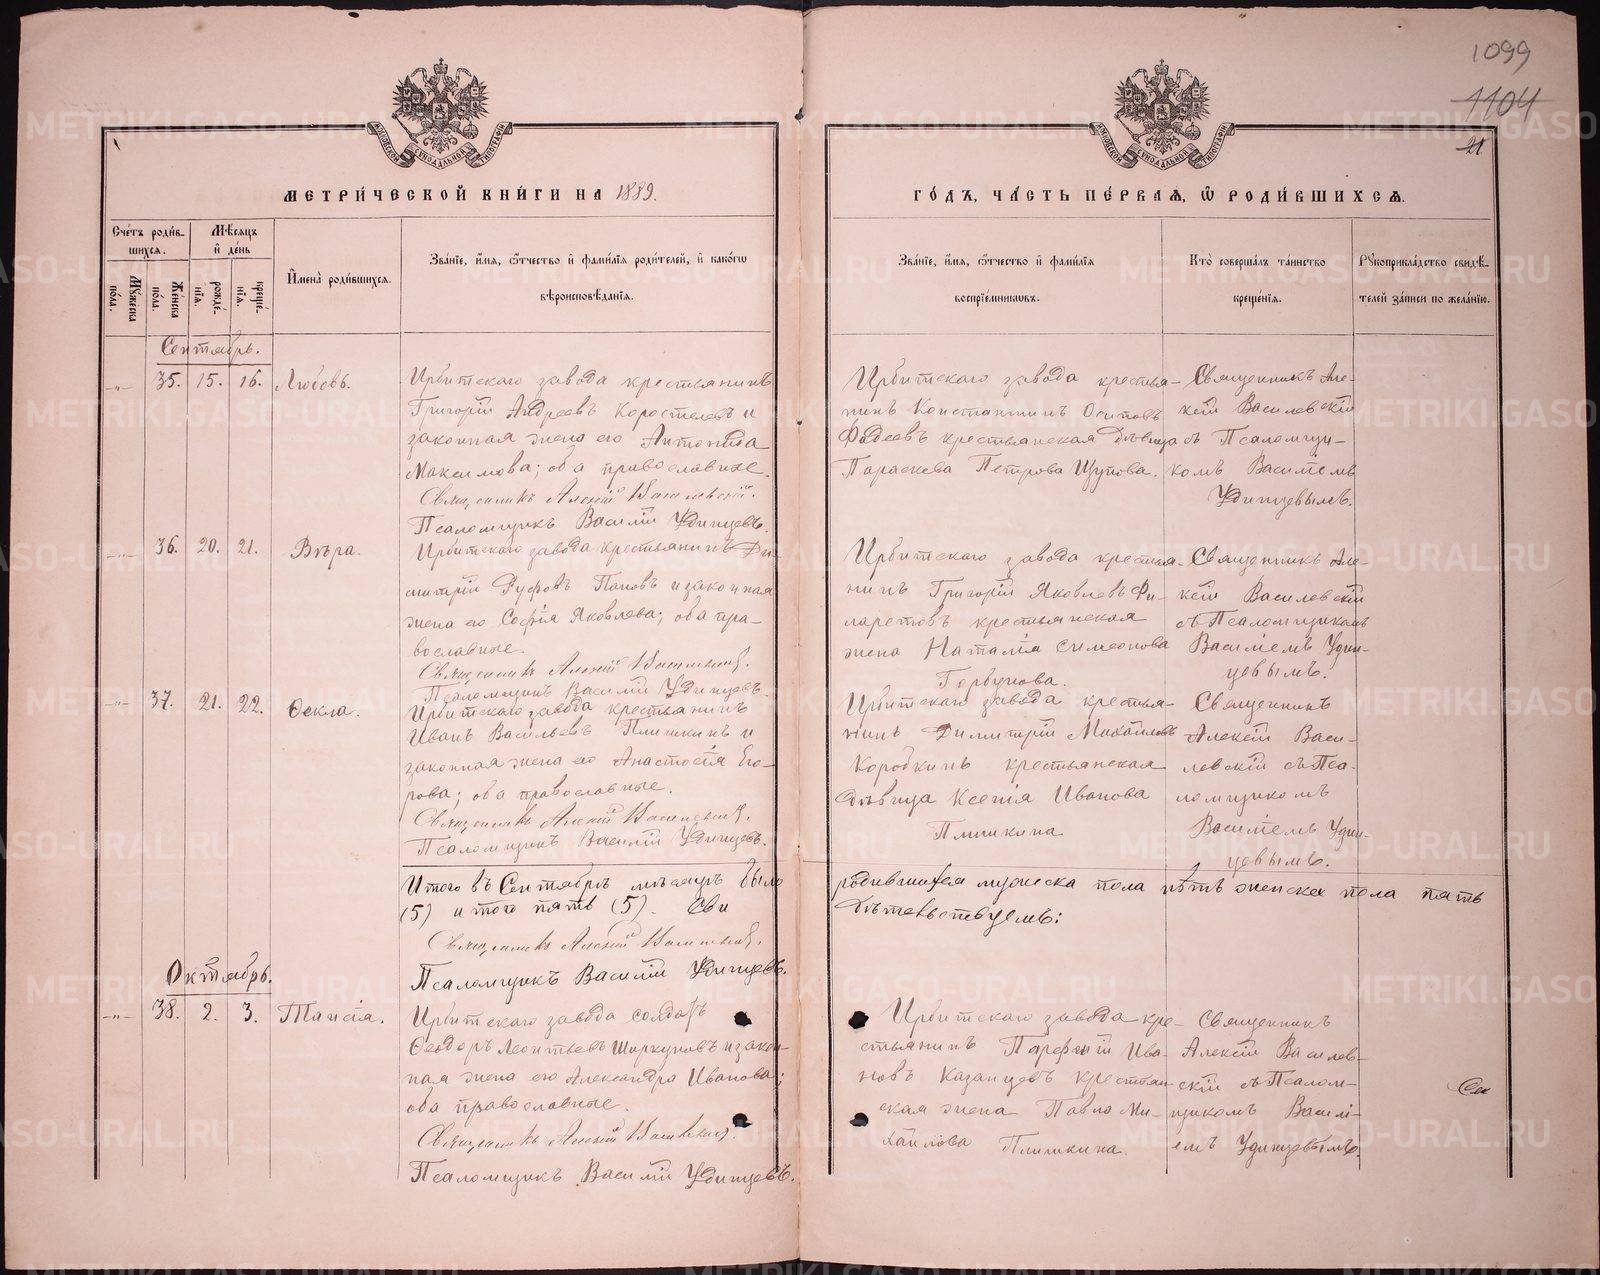 1099
1104
21
МОСКОВСКОЙ СѴНОДАЛЬНОЙ ТИПОГРАФІИ
МОСКОВСКОЙ СѴНОДАЛЬНОЙ ТИПОГРАФІИ
МЕТРИ́ЧЕСКОЙ КНИ́ГИ НА 1889.
ГО́ДЪ, ЧА́СТЬ ПЕ́РВАЯ, Ѿ РОДИ́ВШИХСЯ.
Сче́тъ роди́в-
шихся.
Мѣ́сяцъ
и҆ де́нь
Му́жеска
по́ла.
Же́нска
по́ла.
рожде́-
нїѧ.
креще́-
нїѧ.
И҆мена̀ роди́вшихся.
Зва́нїе, и҆́мя, ѻ҆́тчество и҆ фами́лїя роди́телей, и҆ како́гѡ
вѣроисповѣ́данїя.
Зва́нїе, и҆́мя, ѻ҆́тчество и҆ фами́лїя
воспрїе́мниковъ.
Кто̀ соверша́лъ та́инство
креще́нїя.
Рукоприкла́дство свидѣ́-
телей за́писи по жела́нїю.
Сентябрь.
-"- 35. 15. 16. Любовь.
Ирбитскаго завода крестьянинъ
Григорій Андреевъ Коростелевъ и
законная жена его Антонида
Максимова; оба православные.
Священникъ Алексій Василевскій.
Псаломщикъ Василій Удинцевъ.
Ирбитскаго завода крестья-
нинъ Константинъ Осиповъ
Фадеевъ крестьянская дѣвица
Параскева Петрова Щупова.
Священникъ Але-
ксій Василевскій
съ Псаломщи-
комъ Василіемъ
Удинцевымъ.
-"- 36. 20. 21. Вѣра.
Ирбитскаго завода крестьянинъ Ди-
митрій Руфовъ Поповъ и законная
жена его Софія Яковлева; оба пра-
вославные.
Священникъ Алексій Василевскій.
Псаломщикъ Василій Удинцевъ.
Ирбитскаго завода крестья-
нинъ Григорій Яковлевъ Фи-
ларетовъ крестьянская
жена Наталія Симеонова
Горбунова.
Священникъ Але-
ксій Василевскій
съ Псаломщикомъ
Василіемъ Удин-
цевымъ.
-"- 37. 21. 22. Ѳекла.
Ирбитскаго завода крестьянинъ
Иванъ Васильевъ Плишкинъ и
законная жена его Анастасія Его-
рова; оба православные.
Священникъ Алексій Василевскій.
Псаломщикъ Василій Удинцевъ.
Ирбитскаго завода крестья-
нинъ Димитрій Михайловъ
Коробкинъ крестьянская
дѣвица Ксенія Иванова
Плишкина
Священникъ
Алексій Васи-
левскій съ Пса-
ломщикомъ
Василіемъ Удин-
цевымъ.
Итого въ Сентябрѣ мѣсяцѣ было
родившихся мужеска пола нѣтъ женска пола пять
(5) итого пять (5). Сви
дѣтельствуемъ:
Священникъ Алексій Василевскій.
Псаломщикъ Василій Удинцевъ.
Октябрь.
-"- 38. 2. 3. Таисія.
Ирбитскаго завода солдатъ
Ѳеодоръ Леонтьевъ Ширкуновъ и закон-
ная жена его Александра Иванова;
оба православные.
Священникъ Алексій Василевскій.
Псаломщикъ Василій Удинцевъ.
Ирбитскаго завода кре-
стьянинъ Парфеній Ива-
новъ Казанцевъ крестьян-
ская жена Павла Ми-
хайлова Плишкина.
Священникъ
Алексій Василев-
скій съ Псалом-
щикомъ Василі-
емъ Удинцевымъ.
METRIKI.GASO-URAL.RU